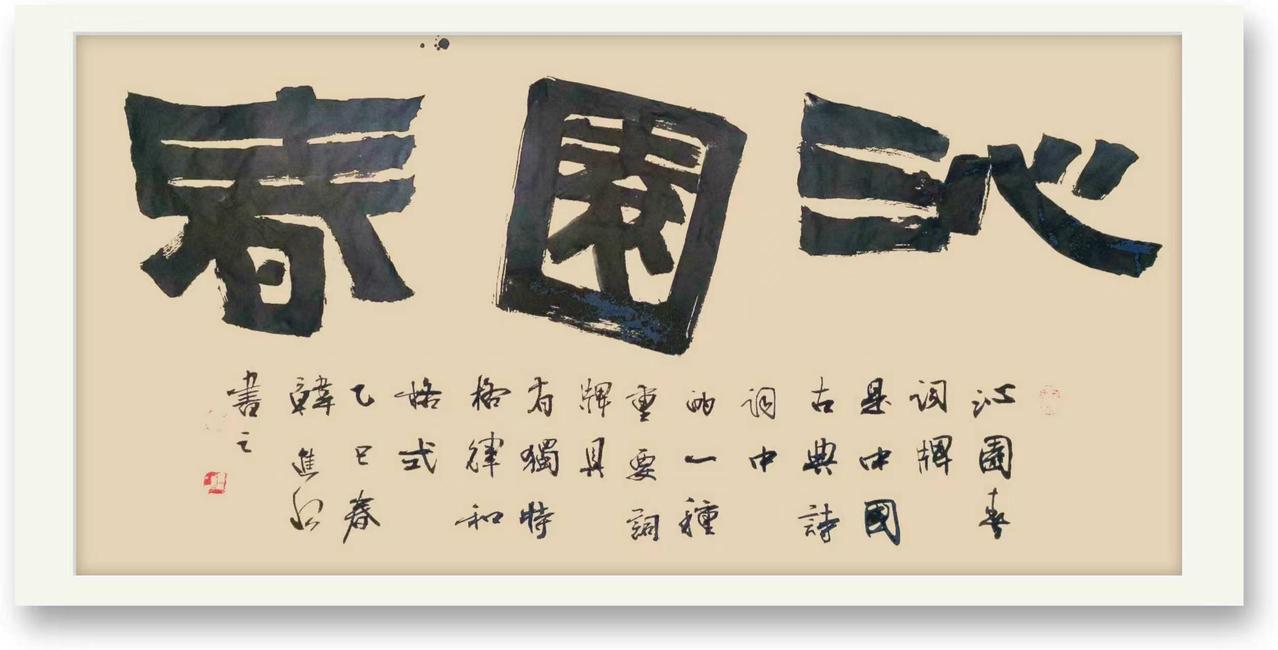 沁園春
沁園春
詞牌
是中國
古典詩
詞中
的一種
重要詞
牌具
有獨特
格律和
格式
乙巳春
韓進
書之